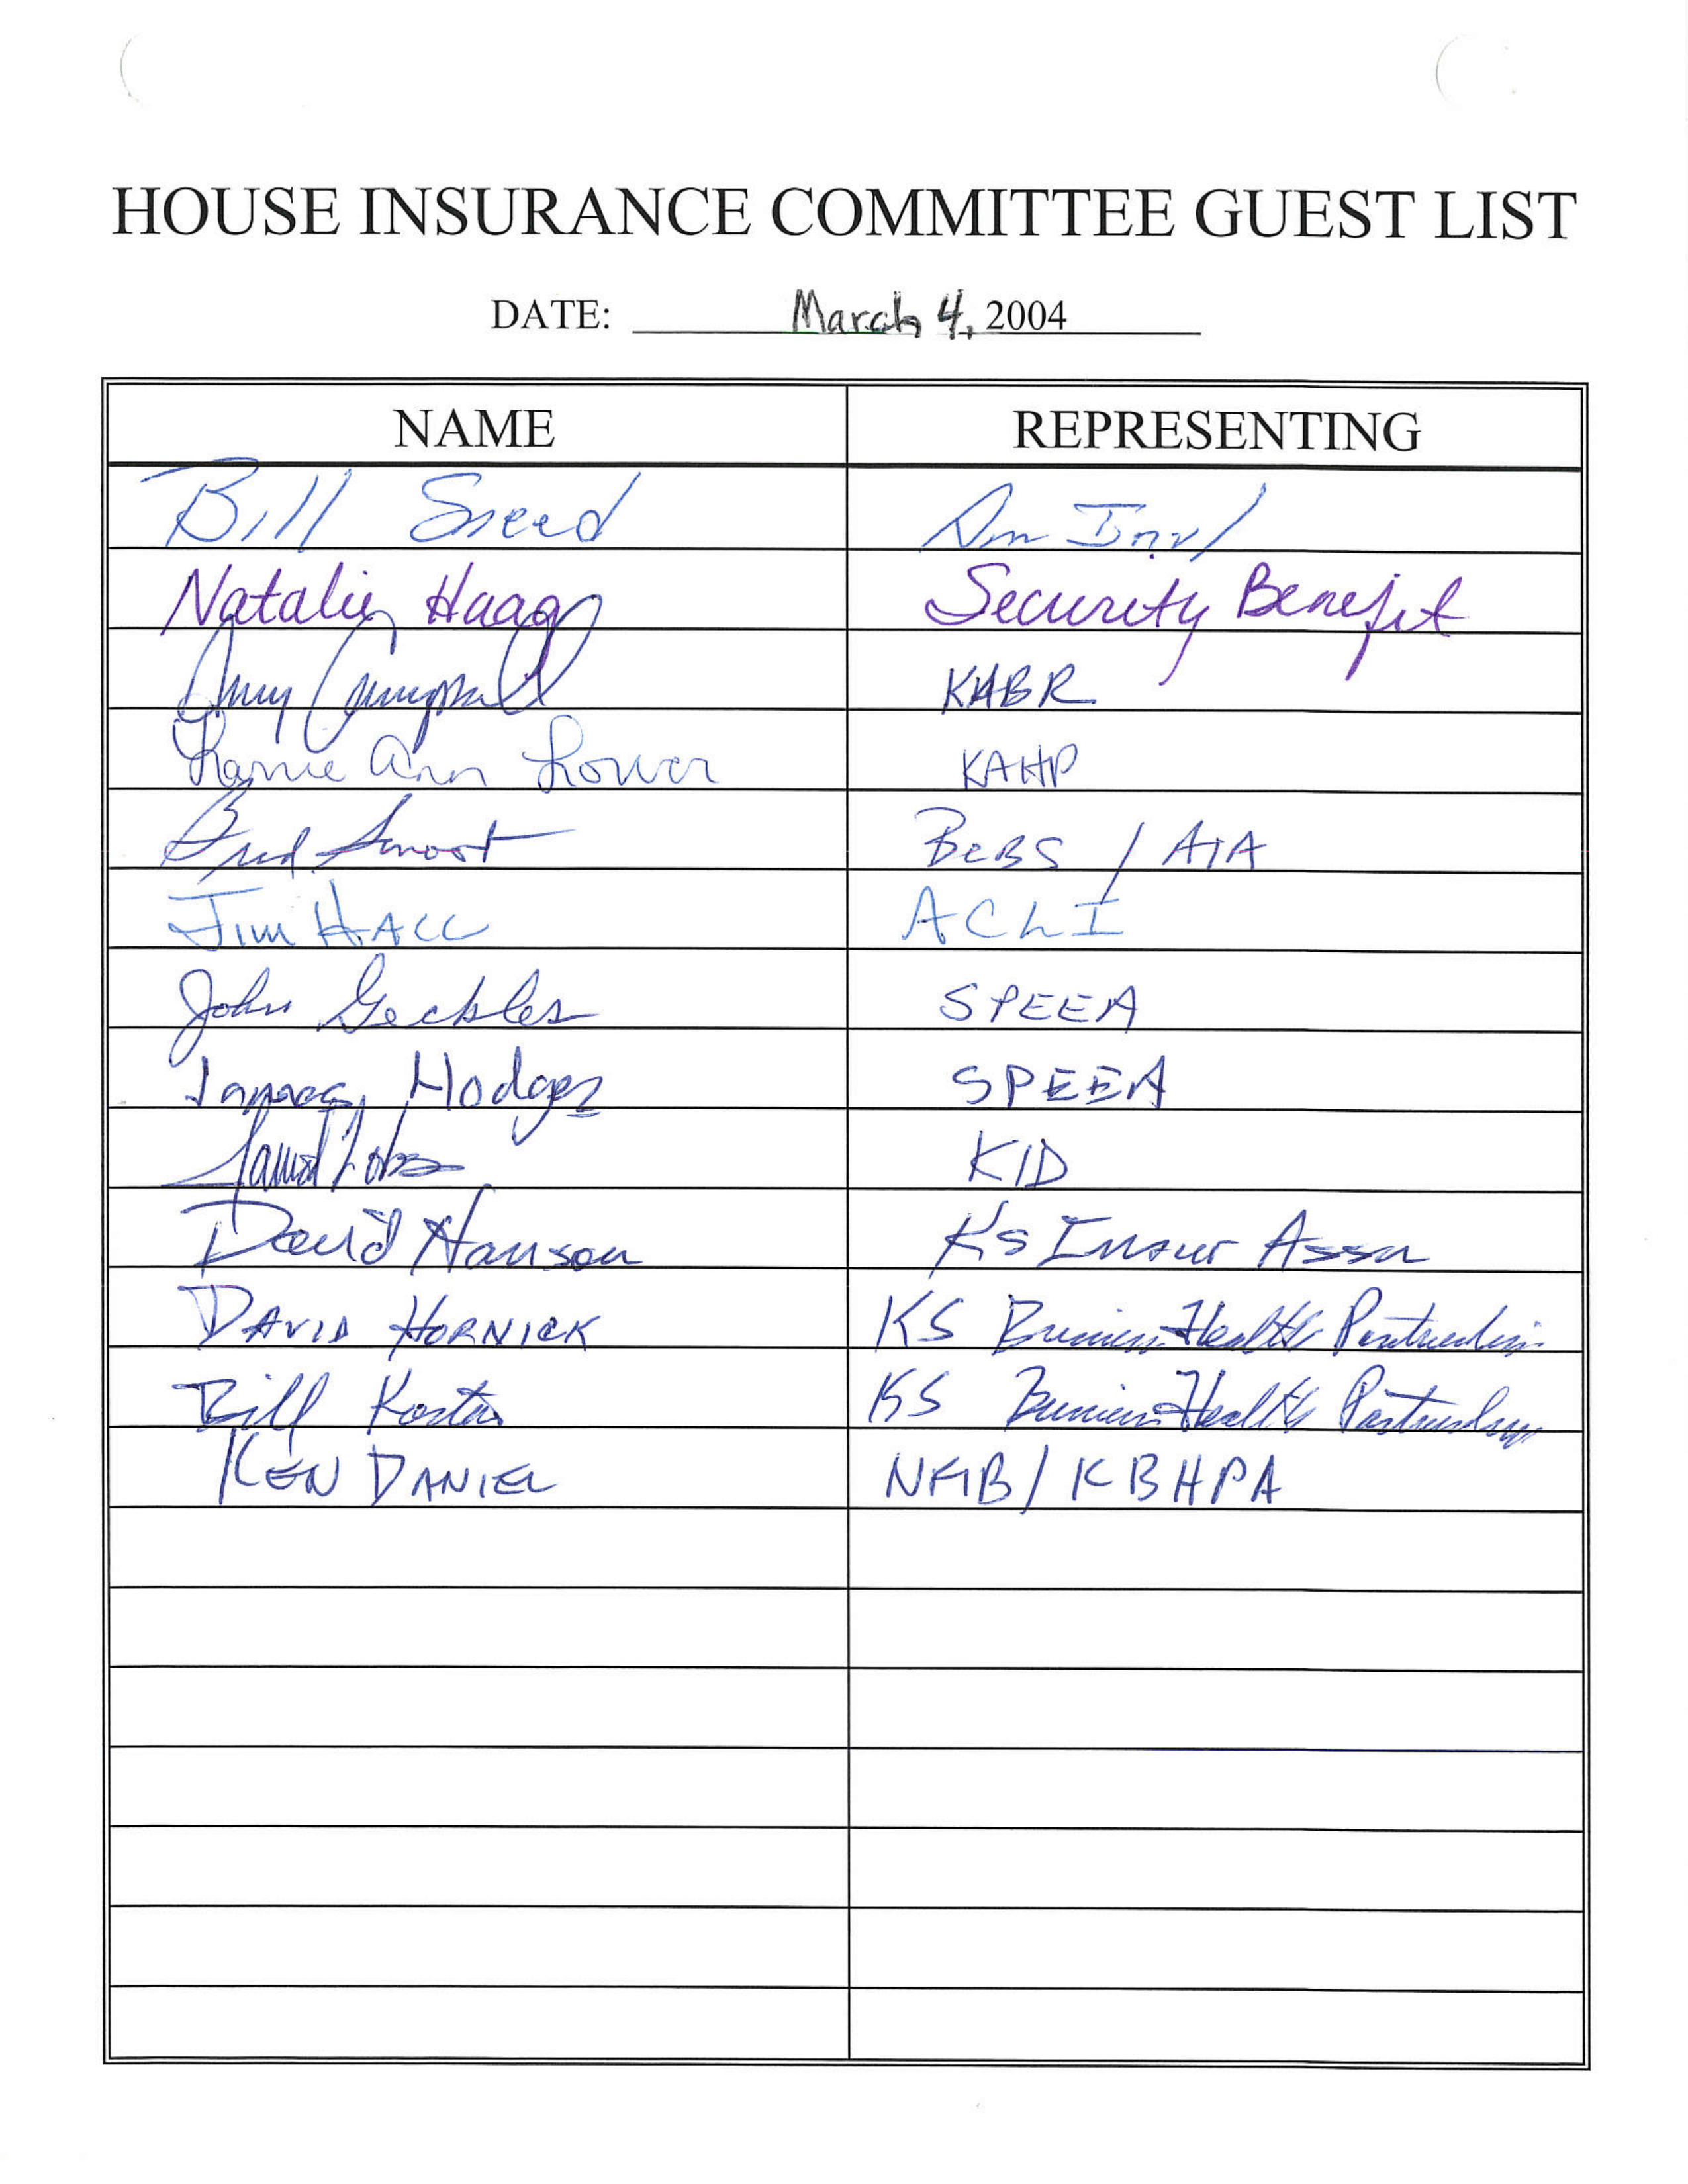 HOUSE INSURANCE COMMITTEE GUEST LIST
DATE: March 4, 2004
NAME REPRESENTING
Bill Sneed
Natalie Haag Security Benefit
Amy Campbell KABR
Larrie Ann Lower KAHP
Brad Smoot BCBS / AIA
Jim Hall ACLI
John SPEEA
Hodges SPEEA
KID
David Hanson Ks Insur Assn
DAVID HORNICK KS Business Health Partnership
Bill KS Business Health Partnership
KEN DANIEL NFIB / KBHPA